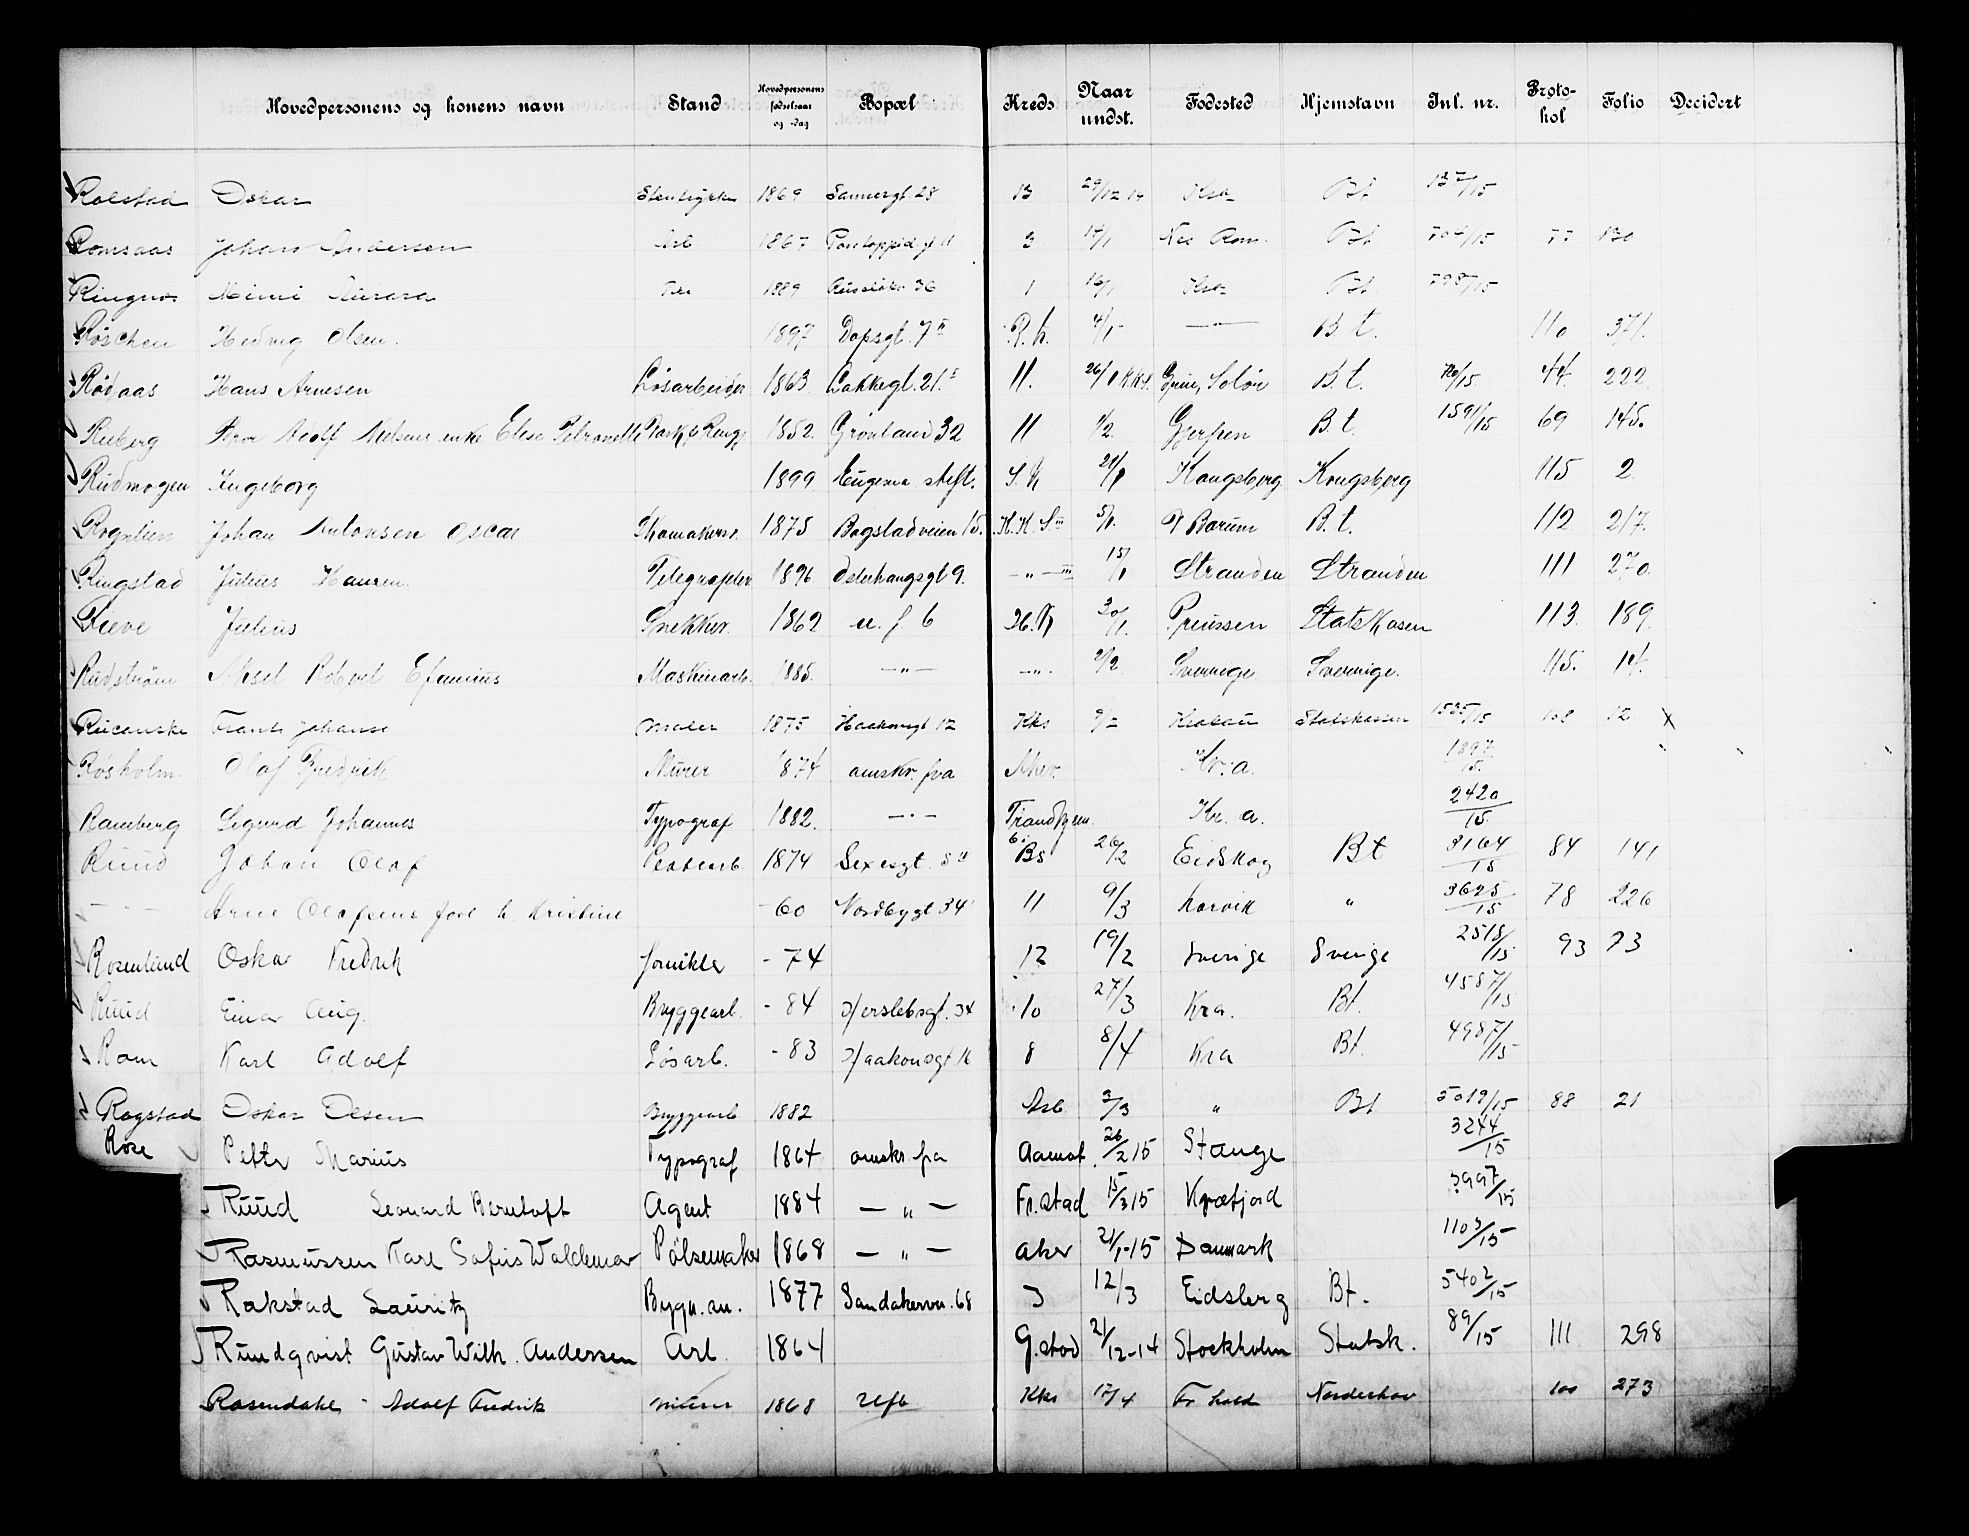 Hovedpersonens og konens navn Stand Hovedpersonens fødselsaar og -dag Bopæl Kreds Naar undst. Fødested Hjemstavn Inl. nr. Protokol Folio Decidert
Rolstad Oskar 1869 Sannergt. 28 13 29/12 14 Kra Bt 137/15
Romsaas Johan Andersen Arb 1867 3 14/1 Nes Rom. Bt 704/15 77 130
Ringnes Mimi Aurora 1889 36 1 16/1 Kra Bt 798/15
Røschen Hedvig Olsen. 1897 Dopsgt. 7 II R.h. 4/1 — " — B.t. 110 371.
Rødaas Hans Arnesen Løsarbeider 1863 Lakkegt. 21. 11. 26/1 Grue, Solør B.t. 44. 222
Ruberg Adolf Nielsens enke Elise Petronelle 1852. Grønland 32 11 1/2. Gjerpen B.t. 1591/15 69 145.
Rudmogen Ingeborg 1899 Eugenia stift. 21/1 Kongsberg Kongsberg 115 2
Rognlien Johan Antonsen Oscar Skomakerm. 1875 Bogstadveien 15. K.K.S. 5/1. V Bærum B.t. 112 217.
Ringstad Julius Hansen. Telegrafelev 1896 Osterhausgt 9. — " — 15/1 Stranden Stranden 111 270.
Rieve Julius Snekker. 1862 u. f. 6 30/1. Preussen Statskasen 113 189.
Rudstrøm Aksel Robert Maskinarb. 1885. — " — — " — 2/2. Sverrige Sverrige. 115. 14.
Johanse Maler 1875 Haakonsgt 12 Kks 9/2 Statskassen 1535/15 108 12 x
Rosholm. Olaf Fredrik Murer 1874 omskr. fra Aker. Kr.a. 1897/15.
Ramberg Sigurd Johannes Typograf 1882. — " — Trondhjem. Kr. a. 2420/15
Ruud Johan Olaf 1874 Sexesgt. 26/2 Eidskog Bt 3164/15 84 141
— " — Arne Olafsens - 60 Nordbygt 34 11 9/3 Larvik " 3625/15 78 226
Rosenlund Oskar Fredrik Fornikler - 74 12 19/2 Sverige Sverige 2518/15 93 73
Ruud Einar Aug. Bryggearb. - 84 Herslebsgt. 34 10 27/3 Kra. Bt. 4587/15
Rom Karl Adolf Løsarb. - 83 Haakonsgt. 16 8 8/4 Kra Bt. 4987/15
Rogstad Oskar Olsen Bryggearb 1882 Arb 3/3 " Bt 5019/15 88 21
Rose Petter Marius Typograf 1864 omskr fra Aamot. 26/2 15 Stange 3244/15
Ruud Leonard Berntoft Agent 1884 — " — Fr.stad 15/3 15 Kvæfjord 3997/15
Rasmussen Karl Sofus Waldemar Pølsemaker 1868 — " — Aker 21/1-15 Danmark 1103/15
Rakstad Lauritz Bygn.an. 1877 Sandakervn. 68 3 12/3 Eidsberg Bt. 5402/15
Rundqvist Gustav Wilh. Andersen Arb. 1864 G.stad 21/12-14 Stockholm Statsk. 89/15 111 298
Rosendahl - Adolf Fredrik 1868 Ufb Kks 17/4 Norderhov 100 273